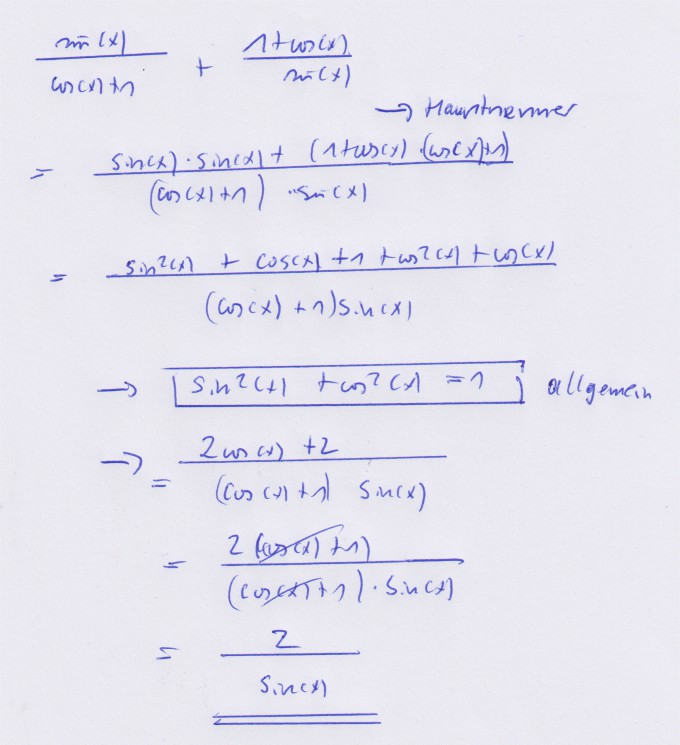 sin(x)/(cos(x)+1) + (1+cos(x))/sin(x)
→ Hauptnenner
= (sin(x)·sin(x) + (1+cos(x))·(cos(x)+1))/((cos(x)+1)·sin(x))
= (sin²(x) + cos(x) + 1 + cos²(x) + cos(x))/((cos(x)+1)sin(x))
→ sin²(x) + cos²(x) = 1 ; allgemein
→ = (2cos(x) + 2)/((cos(x)+1) sin(x))
= 2(cos(x)+1)/((cos(x)+1)·sin(x))
= 2/sin(x)